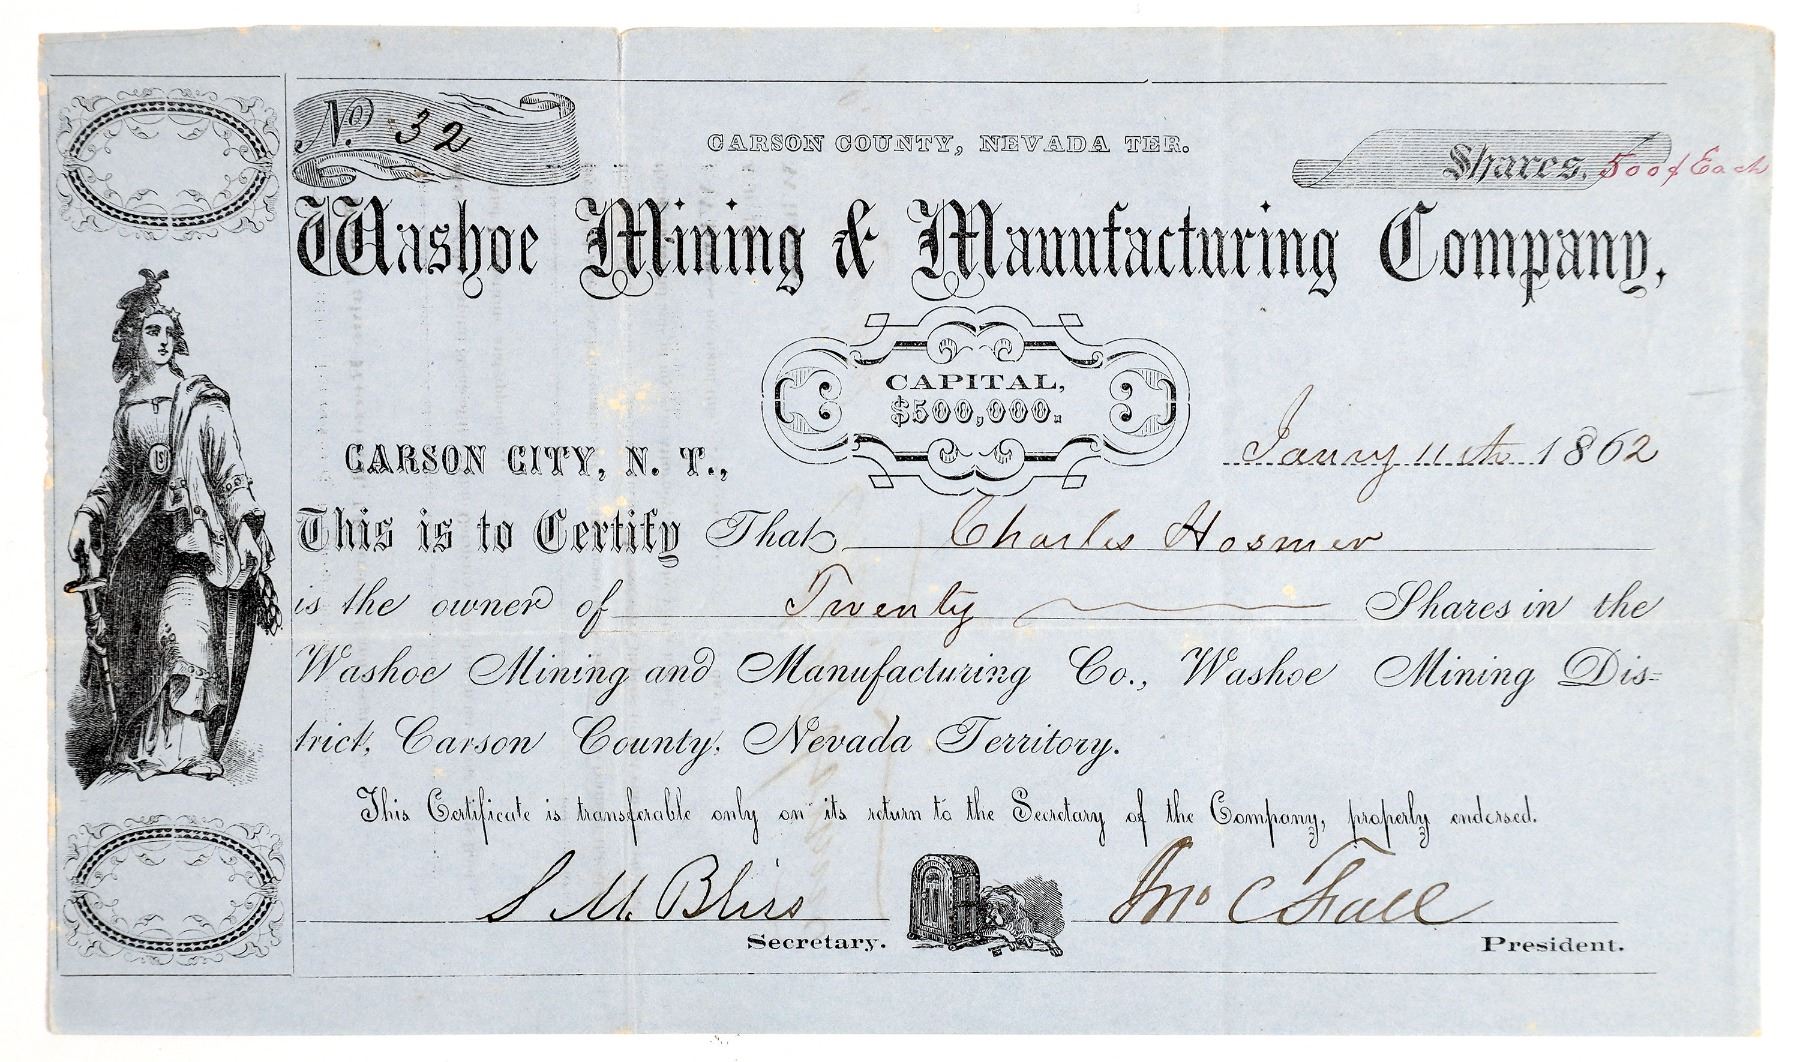 No. 32
CARSON COUNTY, NEVADA TER.
Shares, 500 $ Each
Washoe Mining & Manufacturing Company,
CAPITAL,
$500,000.
CARSON CITY, N. T.,
Janry 11th 1862
This is to Certify That Charles Hosmer
is the owner of Twenty Shares in the
Washoe Mining and Manufacturing Co., Washoe Mining Dis=
trict, Carson County, Nevada Territory.
This Certificate is transferable only on its return to the Secretary of the Company, properly endorsed.
S M. Bliss
Secretary.
Jno C Fall
President.
US